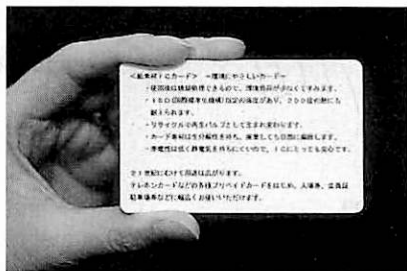 <紙素材ICカード> -環境にやさしいカード-
・使用後は焼却処理できるので、環境負荷が少なくてすみます。
・ISO(国際標準化機構)規定の強度があり、200度の熱にも
耐えられます。
・リサイクルで再生パルプとして生まれ変わります。
・カード素材は生分解性を持ち、廃棄しても自然に崩壊します。
・帯電性は低く静電気を持ちにくいので、ICにとっても安心です。
21世紀にむけて用途は広がります。
テレホンカードなどの各種プリペイドカードをはじめ、入場券、会員証
駐車場券などに幅広くお使いいただけます。